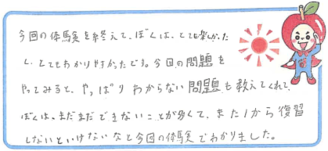 今回の体験を終えて、ぼくは、とても楽しかった
し、とてもわかりやすかったです。今回の問題を
やってみると、やっぱりわからない問題も教えてくれて、
ぼくは、まだまだできないことが多くて、また1から復習
しないといけないなと今回の体験でわかりました。